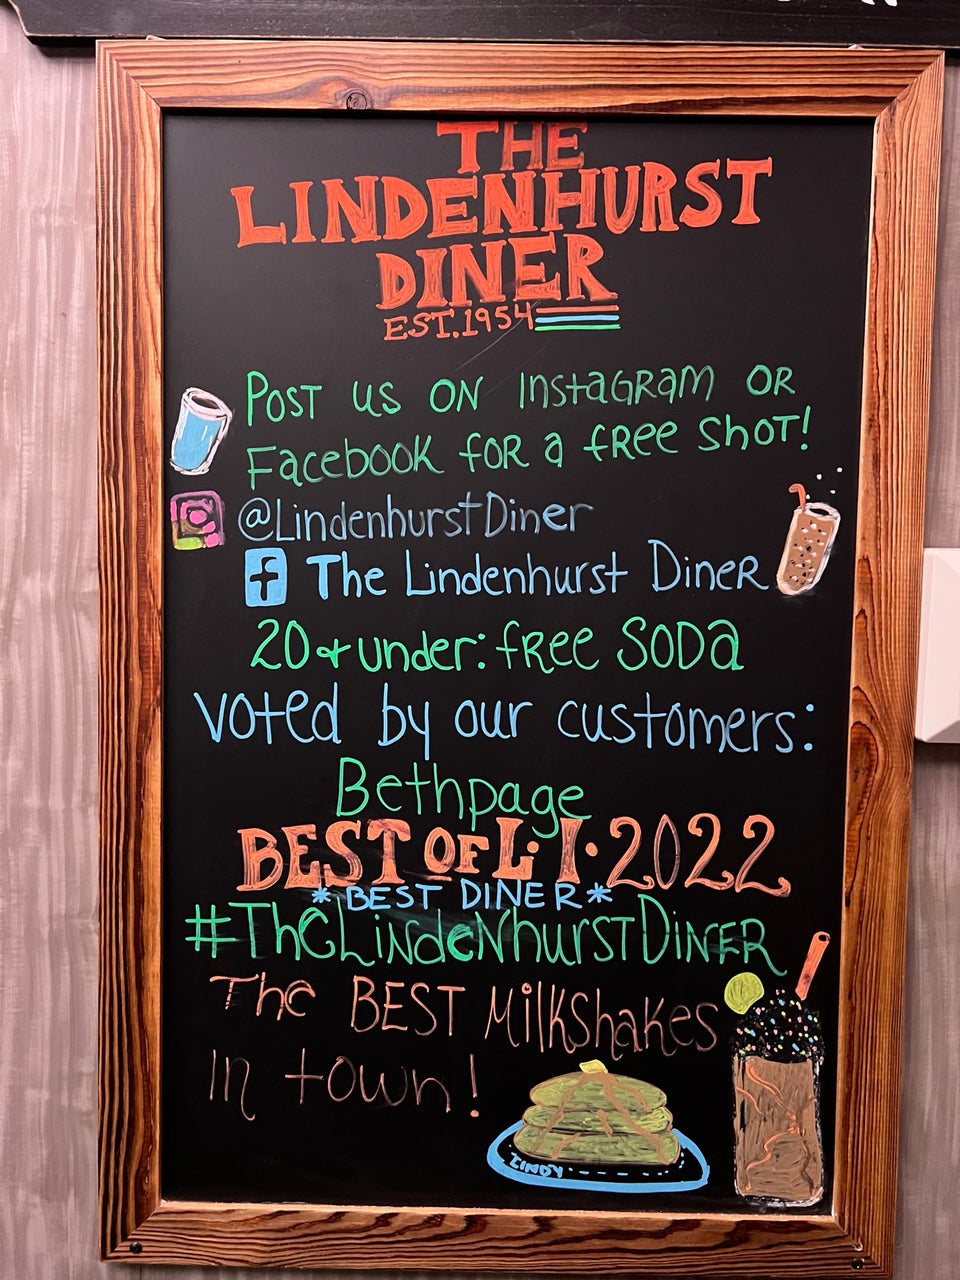 THE
LINDENHURST
DINER
EST.1954
Post us on Instagram or
Facebook for a free shot!
@LindenhurstDiner
f The Lindenhurst Diner
20 & under: free SODA
voted by our customers:
Bethpage
BEST OF L.I. 2022
*BEST DINER*
#TheLindenhurstDiner
The BEST Milkshakes
in town!
LINDY